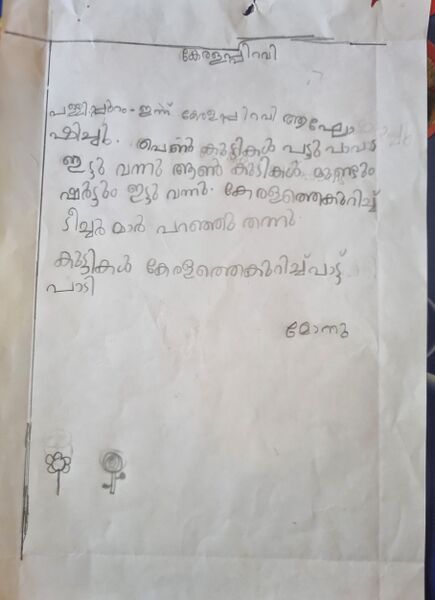 കേരളപ്പിറവി
പള്ളിപ്പുറം - ഇന്ന് കേരളപ്പിറവി ആഘോ
ഷിച്ചു. പെൺ കുട്ടികൾ പട്ടു പാവട
ഇട്ടു വന്നു ആൺ കുടികൾ മുണ്ടും
ഷർട്ടും ഇട്ടു വന്നു. കേരളത്തെകുറിച്ച്
ടീച്ചർ മാർ പറഞ്ഞു തന്നു.
കുട്ടികൾ കേരളത്തെകുറിച്ച് പാട്ട്
പാടി
മോന്നു